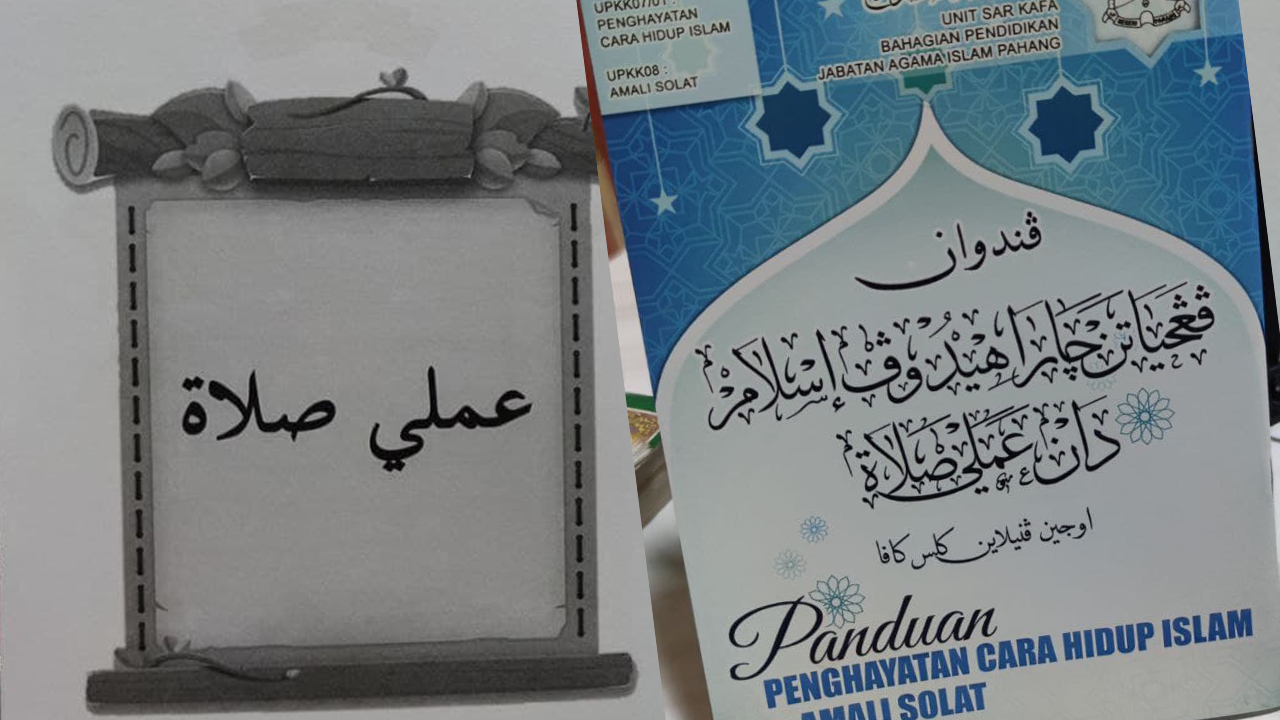 عملي صلاة
UPKK07/01 :
PENGHAYATAN
CARA HIDUP ISLAM
UPKK08 :
AMALI SOLAT
UNIT SAR KAFA
BAHAGIAN PENDIDIKAN
JABATAN AGAMA ISLAM PAHANG
ڤندوان
ڤڠحياتن چارا هيدوڤ إسلام
دان عملي صلاة
اوجين ڤنيلاين کلس کافا
Panduan
PENGHAYATAN CARA HIDUP ISLAM
AMALI SOLAT